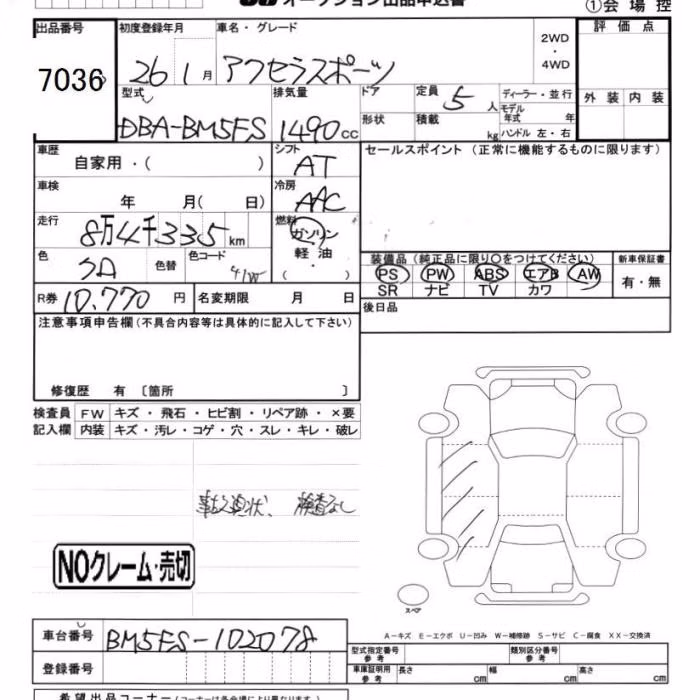 オークション出品申込書
①会場控
出品番号 初度登録年月 車名・グレード 2WD・4WD 評価点
7036 26 1月 アクセラスポーツ
型式 排気量 ドア 定員 5人 ディーラー・並行 外装 内装
DBA-BM5FS 1490cc 形状 積載 kg モデル年式 年 ハンドル 左・右
車歴 自家用・( ) シフト AT セールスポイント (正常に機能するものに限ります)
車検 年 月( 日) 冷房 AAC
走行 8万4千335km 燃料 ガソリン
軽油
・( )
色 色替 色コード 41W
装備品 (純正品に限り○をつけてください) 新車保証書
PS PW ABS エアB AW 有・無
SR ナビ TV カワ
R券 10,770円 名変期限 月 日 後日品
注意事項申告欄 (不具合内容等は具体的に記入して下さい)
修復歴 有 〔箇所 〕
検査員 FW キズ・飛石・ヒビ割・リペア跡・×要
記入欄 内装 キズ・汚レ・コゲ・穴・スレ・キレ・破レ
事故現状、検査なし
NOクレーム・売切
スペア
A-キズ E-エクボ U-凹み W-補修跡 S-サビ C-腐食 XX-交換済
車台番号 BM5FS-102078
登録番号
型式指定番号 参考 類別区分番号 参考
車庫証明用 参考 長さ cm 幅 cm 高さ cm
希望出品コーナー (コーナーは各会場により異なります。)